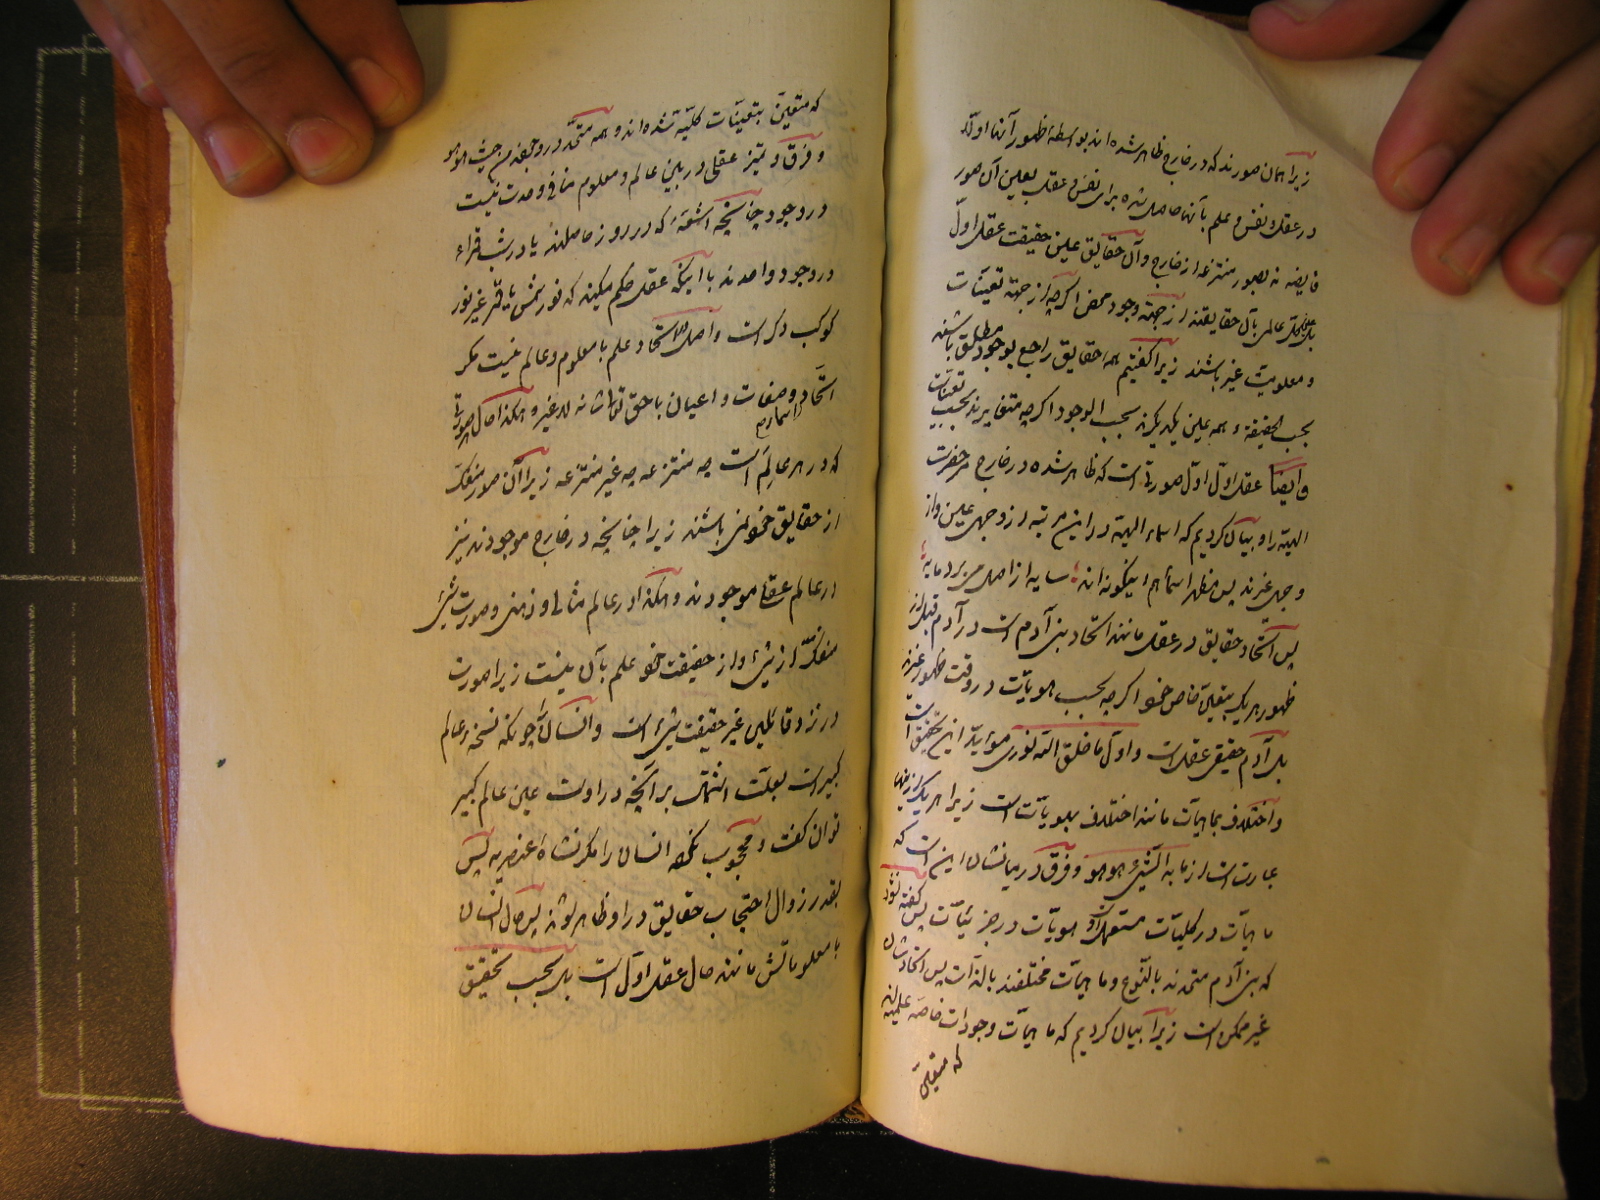 زیرا همان صورند که در خارج ظاهر شده اند بواسطهٔ ظهور آنها اولا
در عقل و نفس و علم بآنها حاصل شده برای نفس و عقل بعین آن صور
فایضه نه بصور منتزعه از خارج و آن حقایق عین حقیقت عقل اول
بلکه عالم بآن حقایقند از جهة وجود محض اگرچه از جهة تعینات
و معلومیت غیر باشند زیرا گفتیم همه حقایق راجع بوجود مطلق باشند
بحسب الحقیقة و همه عین یکدیگرند بحسب الوجود اگرچه متغایرند بحسب تعینات
و ایضا عقل اول اول صورتی است که ظاهر شده در خارج مر حضرت
الهیه را و بیان کردیم که اسماء الهیه در این مرتبه از وجهی عین و از
وجهی غیرند پس مظهر اسما هم اینگونه اند سایه از اصل می برد مایه
پس اتحاد حقایق در عقل مانند اتحاد بنی آدم است در آدم قبل از
ظهور هر یک بتعین خاص خود اگرچه بحسب هویات در وقت ظهور غیرند
بل آدم حقیقی عقل است و اول ما خلق الله نوری مؤید این تحقیق است
و اختلاف بماهیات مانند اختلاف بهویات است زیرا هر یک از اینها
عبارت است از ما به الشیء هو هو و فرق در میانشان این است که
ماهیات در کلیات مستعمل و هویات در جزئیات پس گفته نشود
که بنی آدم متحدند بالنوع و ماهیات مختلفند بالذات پس اتحادشان
غیر ممکن است زیرا بیان کردیم که ماهیات وجودات خاصه علمیه اند
که متعین
که متعین بتعینات کلیه شده اند و همه متحد در وجودند من حیث هو هو
و فرق و تمیز عقلی در بین عالم و معلوم منافی وحدت نیست
در وجود چنانچه اشعهٔ که در روز حاصلند یا در شب قمراء
در وجود واحدند با اینکه عقل حکم میکند که نور شمس یا قمر غیر نور
کوکب دیگر است و اصل اتحاد علم با معلوم و عالم نیست مگر
اتحاد صفات و اسماء و اعیان با حق تعالی شانه لا غیر و هکذا حال صورتی
که در هر عالم است چه منتزعه چه غیر منتزعه زیرا آن صور منفک
از حقایق خود نمی باشند زیرا چنانچه در خارج موجودند نیز
در عالم عقلی موجودند و هکذا در عالم مثالی و ذهنی و صورت شیء
منفک از شیء و از حقیقت خود علم بآن نیست زیرا صورت
در نزد قائلین غیر حقیقت شیء است و انسان چونکه نسخهٔ عالم
کبیر است بعلت اشتمال بر آنچه در اوست عین عالم کبیر
توان گفت و محجوب نکرده انسان را مگر نشاهٔ عنصریه پس
بقدر زوال احتجاب حقایق در او ظاهر شوند پس حال انسان
با معلوماتش مانند حال عقل اول است بل بحسب تحقیق